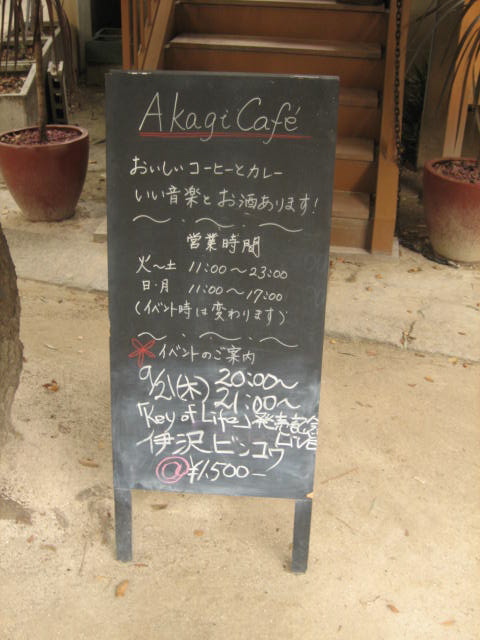 Akagi Café
おいしいコーヒーとカレー
いい音楽とお酒あります!
営業時間
火〜土 11:00〜23:00
日・月 11:00〜17:00
(イベント時は変わります)
イベントのご案内
9/21(木) 20:00〜
21:00〜
「Key of Life」発売記念
LIVE
伊沢ビンコウ
@¥1,500−